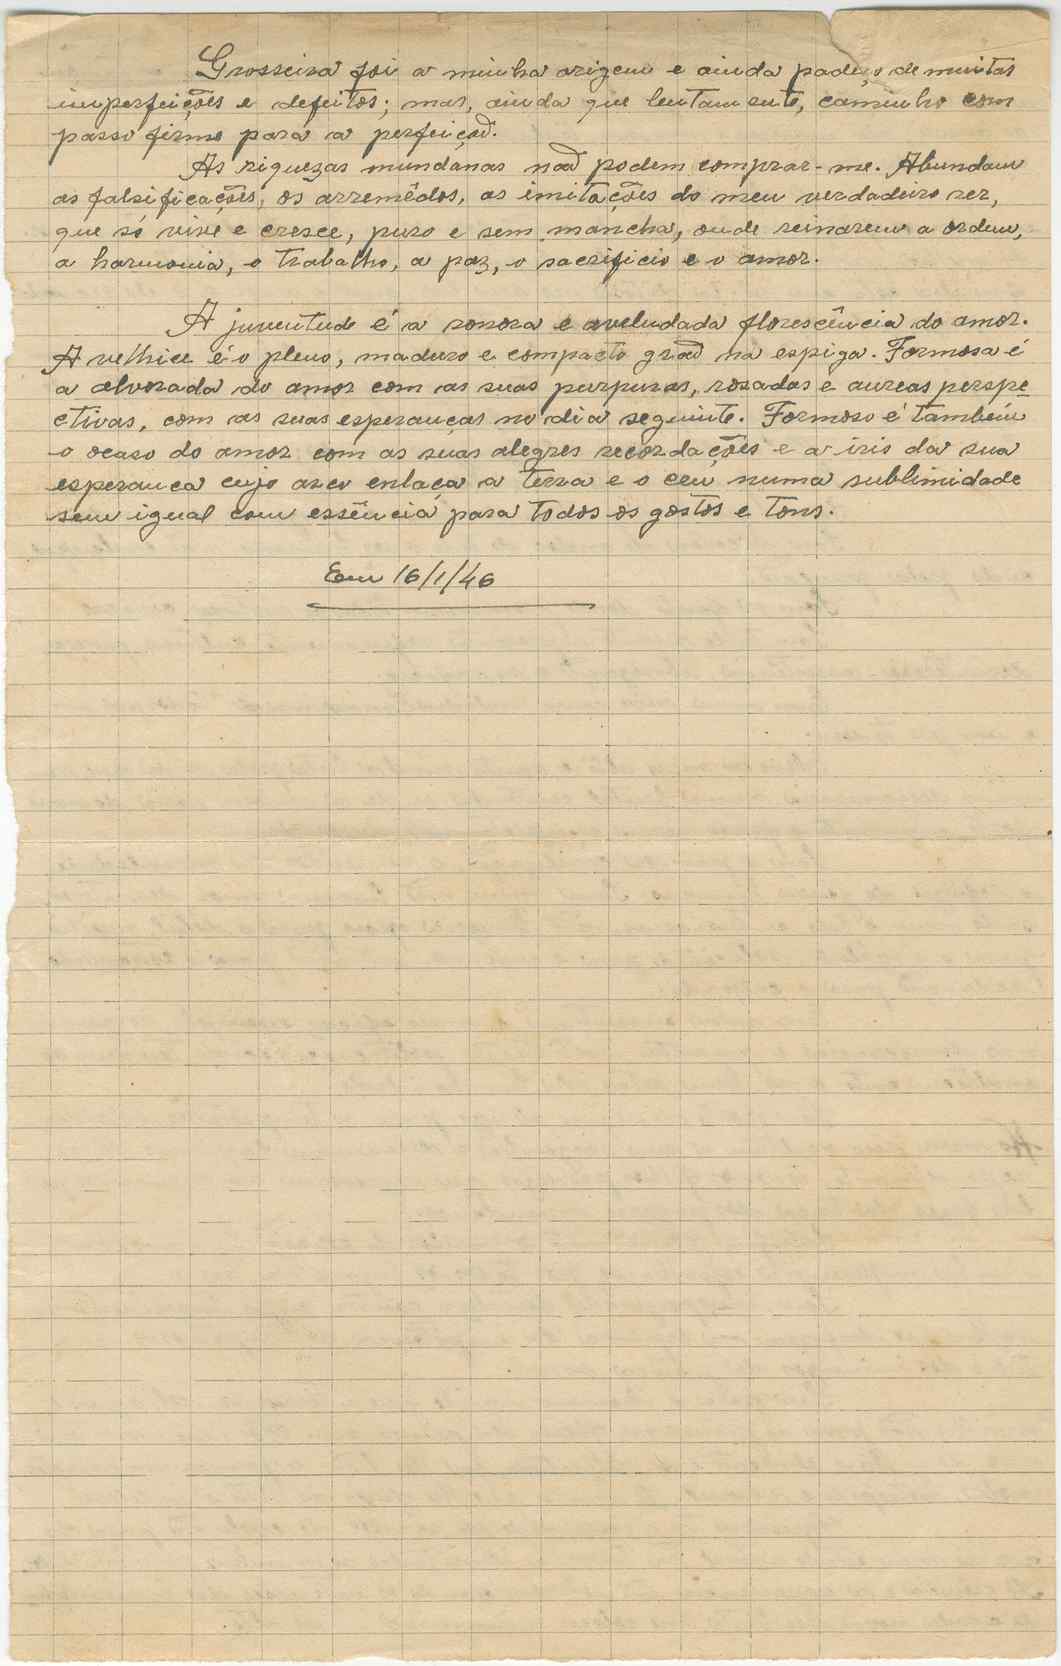 Grosseira foi a minha origem e ainda padeço de muitas
imperfeições e defeitos; mas, ainda que lentamente, caminho com
passo firme para a perfeição.
As riquezas mundanas não podem comprar-me. Abundam
as falsificações, os arremêdos, as imitações do meu verdadeiro ser,
que só vive e cresce, puro e sem mancha, onde reinarem a ordem,
a harmonia, o trabalho, a paz, o sacrificio e o amor.
A juventude é a sonora e aveludada florescência do amor.
A velhice é o pleno, maduro e compacto grão na espiga. Formosa é
a alvorada do amor com as suas purpuras, rosadas e aureas perspe
ctivas, com as suas esperanças no dia seguinte. Formoso é tambeém
o ocaso do amor com as suas alegres recordações e a iris da sua
esperanca cujo arco enlaça a terra e o ceu numa sublimidade
sem igual com essência para todos os gostos e tons.
Em 16/1/46